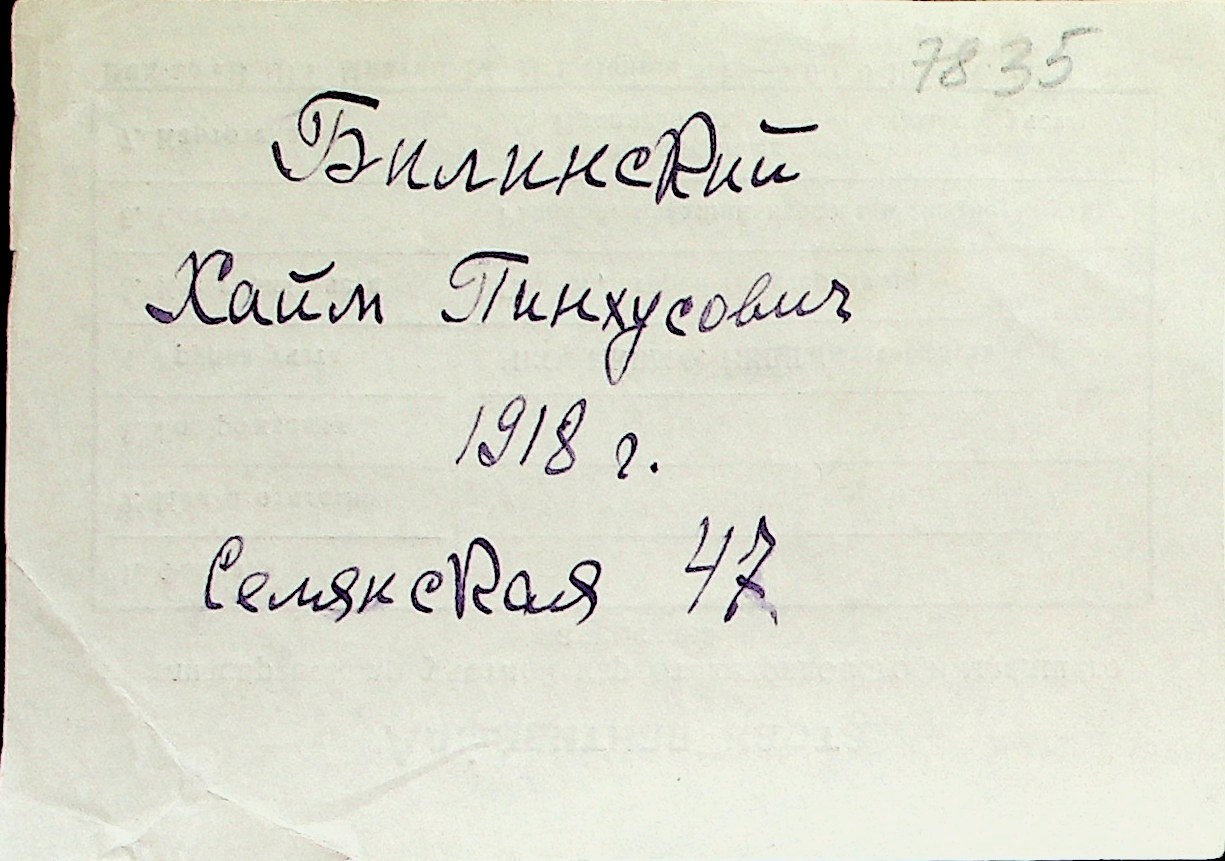 7835
Билинский
Хайм Пинхусович
1918 г.
Селянская 47